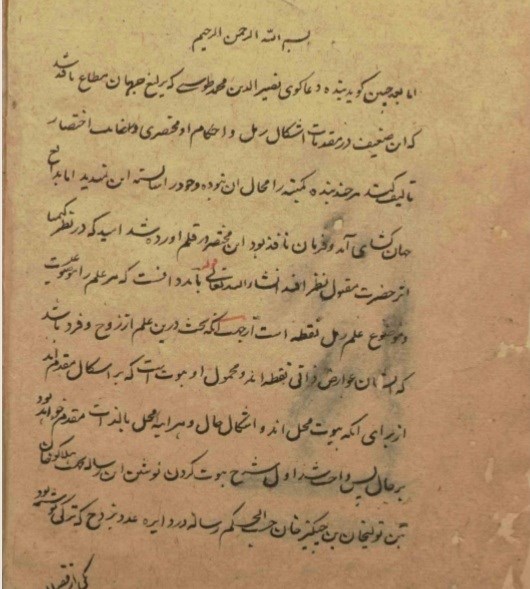 بسم الله الرحمن الرحیم
اما بعد چنین گوید بنده دعاگوی نصیرالدین محمد طوسی که یرلیغ جهان مطاع نافذ شد
که این ضعیف در مقدمات اشکال رمل و احکام او مختصری و بغایت اختصار
تالیف کند هر چند بنده کمینه را محال آن نبوده و خود را شایسته این ندید اما بدا
جهان گشای آمد و فرمان نافذ بود این مختصر در قلم آورده شد امید که در نظر کیمیا
اثر حضرت مقبول نظر افتد انشاء الله تعالی بدانکه هر علم را موضوعیست
و موضوع علم رمل نقطه است از جهت آنکه بحث درین علم از زوج و فرد باشد
که ایشان عوارض ذاتی نقطه اند و محمول او بیوت است که بر اشکال مقدم اند
از برای آنکه بیوت محل اند و اشکال حال و هر آینه محل بالذات مقدم خواهد بود
بر حال پس واجب شد اول شرح بیوت کردن نوشتن این رساله هلاکوخان
بن تولیخان بن چنگیز خان حسب الحکم رساله در دایره عدد بزدح که